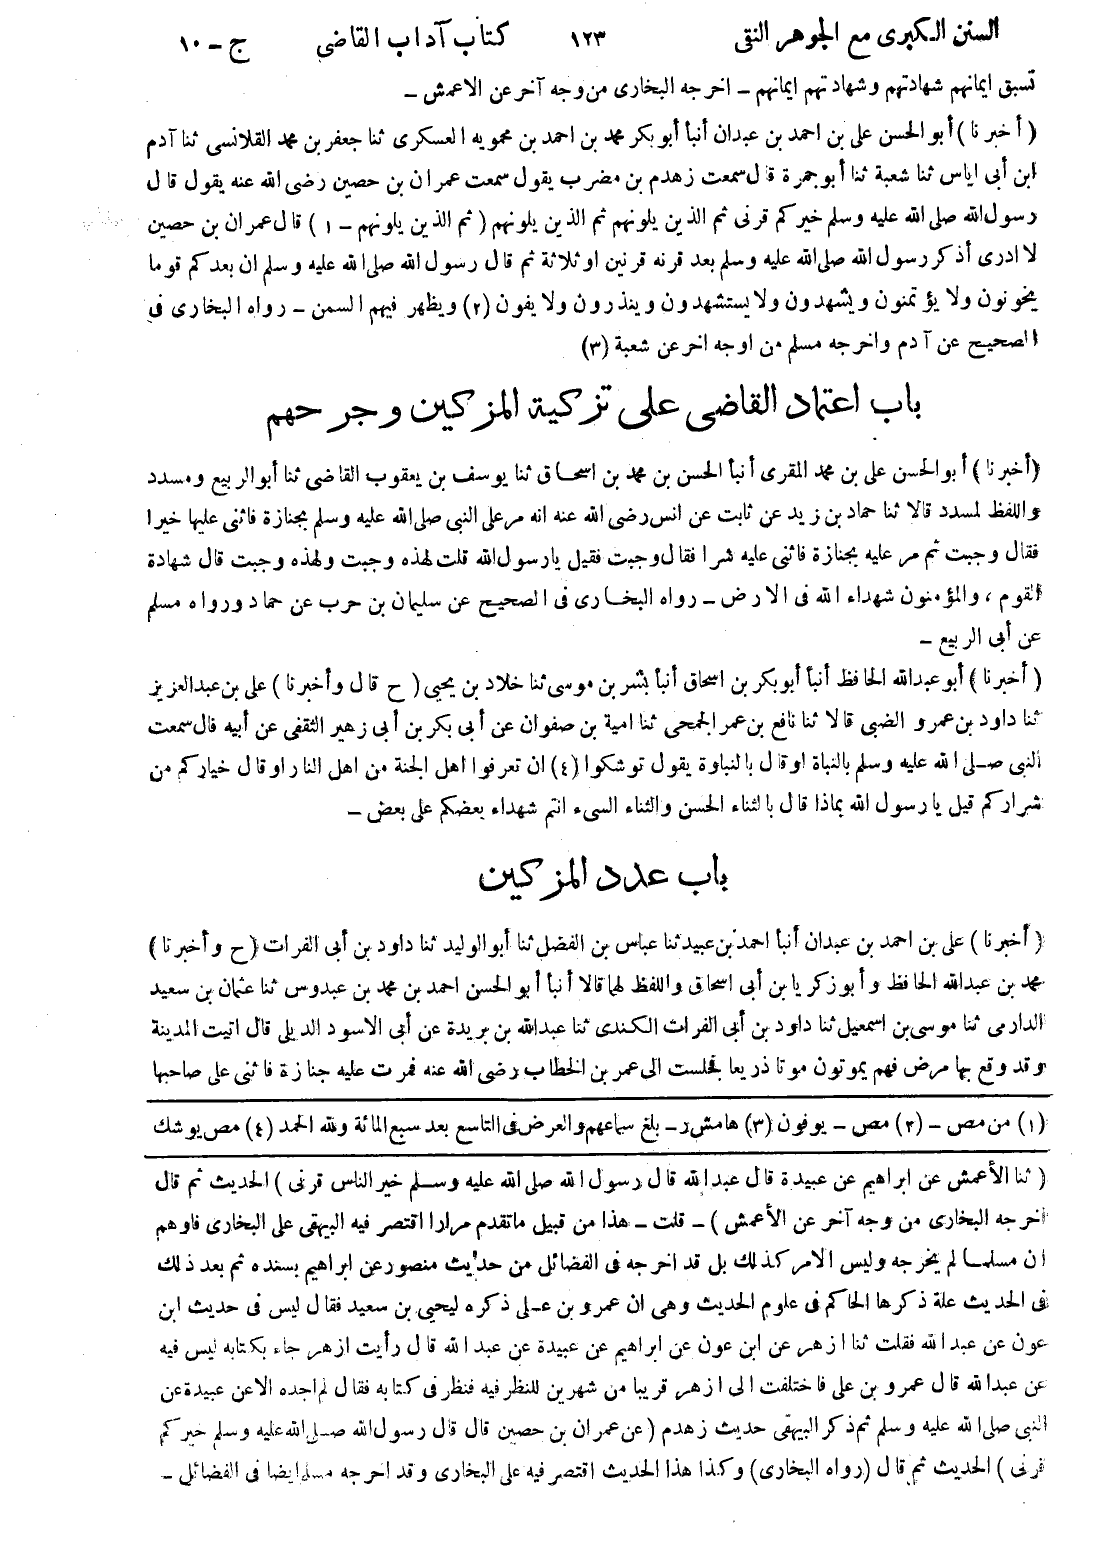 السنن الكبرى مع الجوهر النقى ١٢٣ كتاب آداب القاضى ج - ١٠
تسبق ايمانهم شهادتهم وشهادتهم ايمانهم - اخرجه البخارى من وجه آخر عن الاعمش -
( أخبرنا ) أبو الحسن على بن احمد بن عبدان أنبأ أبو بكر محمد بن احمد بن محمويه العسكرى ثنا جعفر بن محمد القلانسى ثنا آدم
ابن أبى اياس ثنا شعبة ثنا أبو جمرة قال سمعت زهدم بن مضرب يقول سمعت عمران بن حصين رضى الله عنه يقول قال
رسول الله صلى الله عليه وسلم خيركم قرنى ثم الذين يلونهم ثم الذين يلونهم ( ثم الذين يلونهم - ١ ) قال عمران بن حصين
لا ادرى أذكر رسول الله صلى الله عليه وسلم بعد قرنه قرنين او ثلاثة ثم قال رسول الله صلى الله عليه وسلم ان بعدكم قوما
يخونون ولا يؤتمنون ويشهدون ولا يستشهدون وينذرون ولا يفون (٢) ويظهر فيهم السمن - رواه البخارى فى
الصحيح عن آدم واخرجه مسلم من اوجه اخر عن شعبة (٣)
باب اعتماد القاضى على تزكية المزكين وجرحهم
(أخبرنا) أبو الحسن على بن محمد المقرى أنبأ الحسن بن محمد بن اسحاق ثنا يوسف بن يعقوب القاضى ثنا أبو الربيع ومسدد
واللفظ لمسدد قالا ثنا حماد بن زيد عن ثابت عن انس رضى الله عنه انه مر على النبى صلى الله عليه وسلم بجنازة فاثنى عليها خيرا
فقال وجبت ثم مر عليه بجنازة فاثنى عليه شرا فقال وجبت فقيل يا رسول الله قلت لهذه وجبت ولهذه وجبت قال شهادة
القوم ، والمؤمنون شهداء الله فى الارض - رواه البخارى فى الصحيح عن سليمان بن حرب عن حماد ورواه مسلم
عن أبى الربيع -
( أخبرنا ) أبو عبد الله الحافظ أنبأ أبو بكر بن اسحاق أنبأ بشر بن موسى ثنا خلاد بن يحيى ( ح قال وأخبرنا ) على بن عبد العزيز
ثنا داود بن عمرو الضبى قالا ثنا نافع بن عمر الجمحى ثنا امية بن صفوان عن أبى بكر بن أبى زهير الثقفى عن أبيه قال سمعت
النبى صلى الله عليه وسلم بالنباة او قال بالنباوة يقول توشكوا (٤) ان تعرفوا اهل الجنة من اهل النار او قال خياركم من
شراركم قيل يا رسول الله بماذا قال بالثناء الحسن والثناء السىء انتم شهداء بعضكم على بعض -
باب عدد المزكين
( أخبرنا ) على بن احمد بن عبدان أنبأ احمد بن عبيد ثنا عباس بن الفضل ثنا أبو الوليد ثنا داود بن أبى الفرات (ح وأخبرنا )
محمد بن عبد الله الحافظ وأبو زكريا بن أبى اسحاق واللفظ لهما قالا أنبأ أبو الحسن احمد بن محمد بن عبدوس ثنا عثمان بن سعيد
الدارمى ثنا موسى بن اسمعيل ثنا داود بن أبى الفرات الكندى ثنا عبد الله بن بريدة عن أبى الاسود الديلى قال اتيت المدينة
وقد وقع بها مرض فهم يموتون موتا ذريعا فجلست الى عمر بن الخطاب رضى الله عنه فمرت عليه جنازة فاثنى على صاحبها
(١) من مص - (٢) مص - يوفون (٣) هامش ر - بلغ سماعهم والعرض فى التاسع بعد سبع المائة ولله الحمد (٤) مص يوشك
( ثنا الأعمش عن ابراهيم عن عبيدة قال عبد الله قال رسول الله صلى الله عليه وسلم خير الناس قرنى ) الحديث ثم قال
اخرجه البخارى من وجه آخر عن الأعمش ) - قلت - هذا من قبيل ما تقدم مرارا اقتصر فيه البيهقى على البخارى فاوهم
ان مسلما لم يخرجه وليس الامر كذلك بل قد اخرجه فى الفضائل من حديث منصور عن ابراهيم بسنده ثم بعد ذلك
فى الحديث علة ذكرها الحاكم فى علوم الحديث وهى ان عمرو بن على ذكره ليحيى بن سعيد فقال ليس فى حديث ابن
عون عن عبد الله فقلت ثنا ازهر عن ابن عون عن ابراهيم عن عبيدة عن عبد الله قال رأيت ازهر جاء بكتابه ليس فيه
عن عبد الله قال عمرو بن على فاختلفت الى ازهر قريبا من شهرين للنظر فيه فنظر فى كتابه فقال لم اجده الا عن عبيدة عن
النبى صلى الله عليه وسلم ثم ذكر البيهقى حديث زهدم (عن عمران بن حصين قال قال رسول الله صلى الله عليه وسلم خيركم
قرنى ) الحديث ثم قال (رواه البخارى) وكذا هذا الحديث اقتصر فيه على البخارى وقد اخرجه مسلم ايضا فى الفضائل -